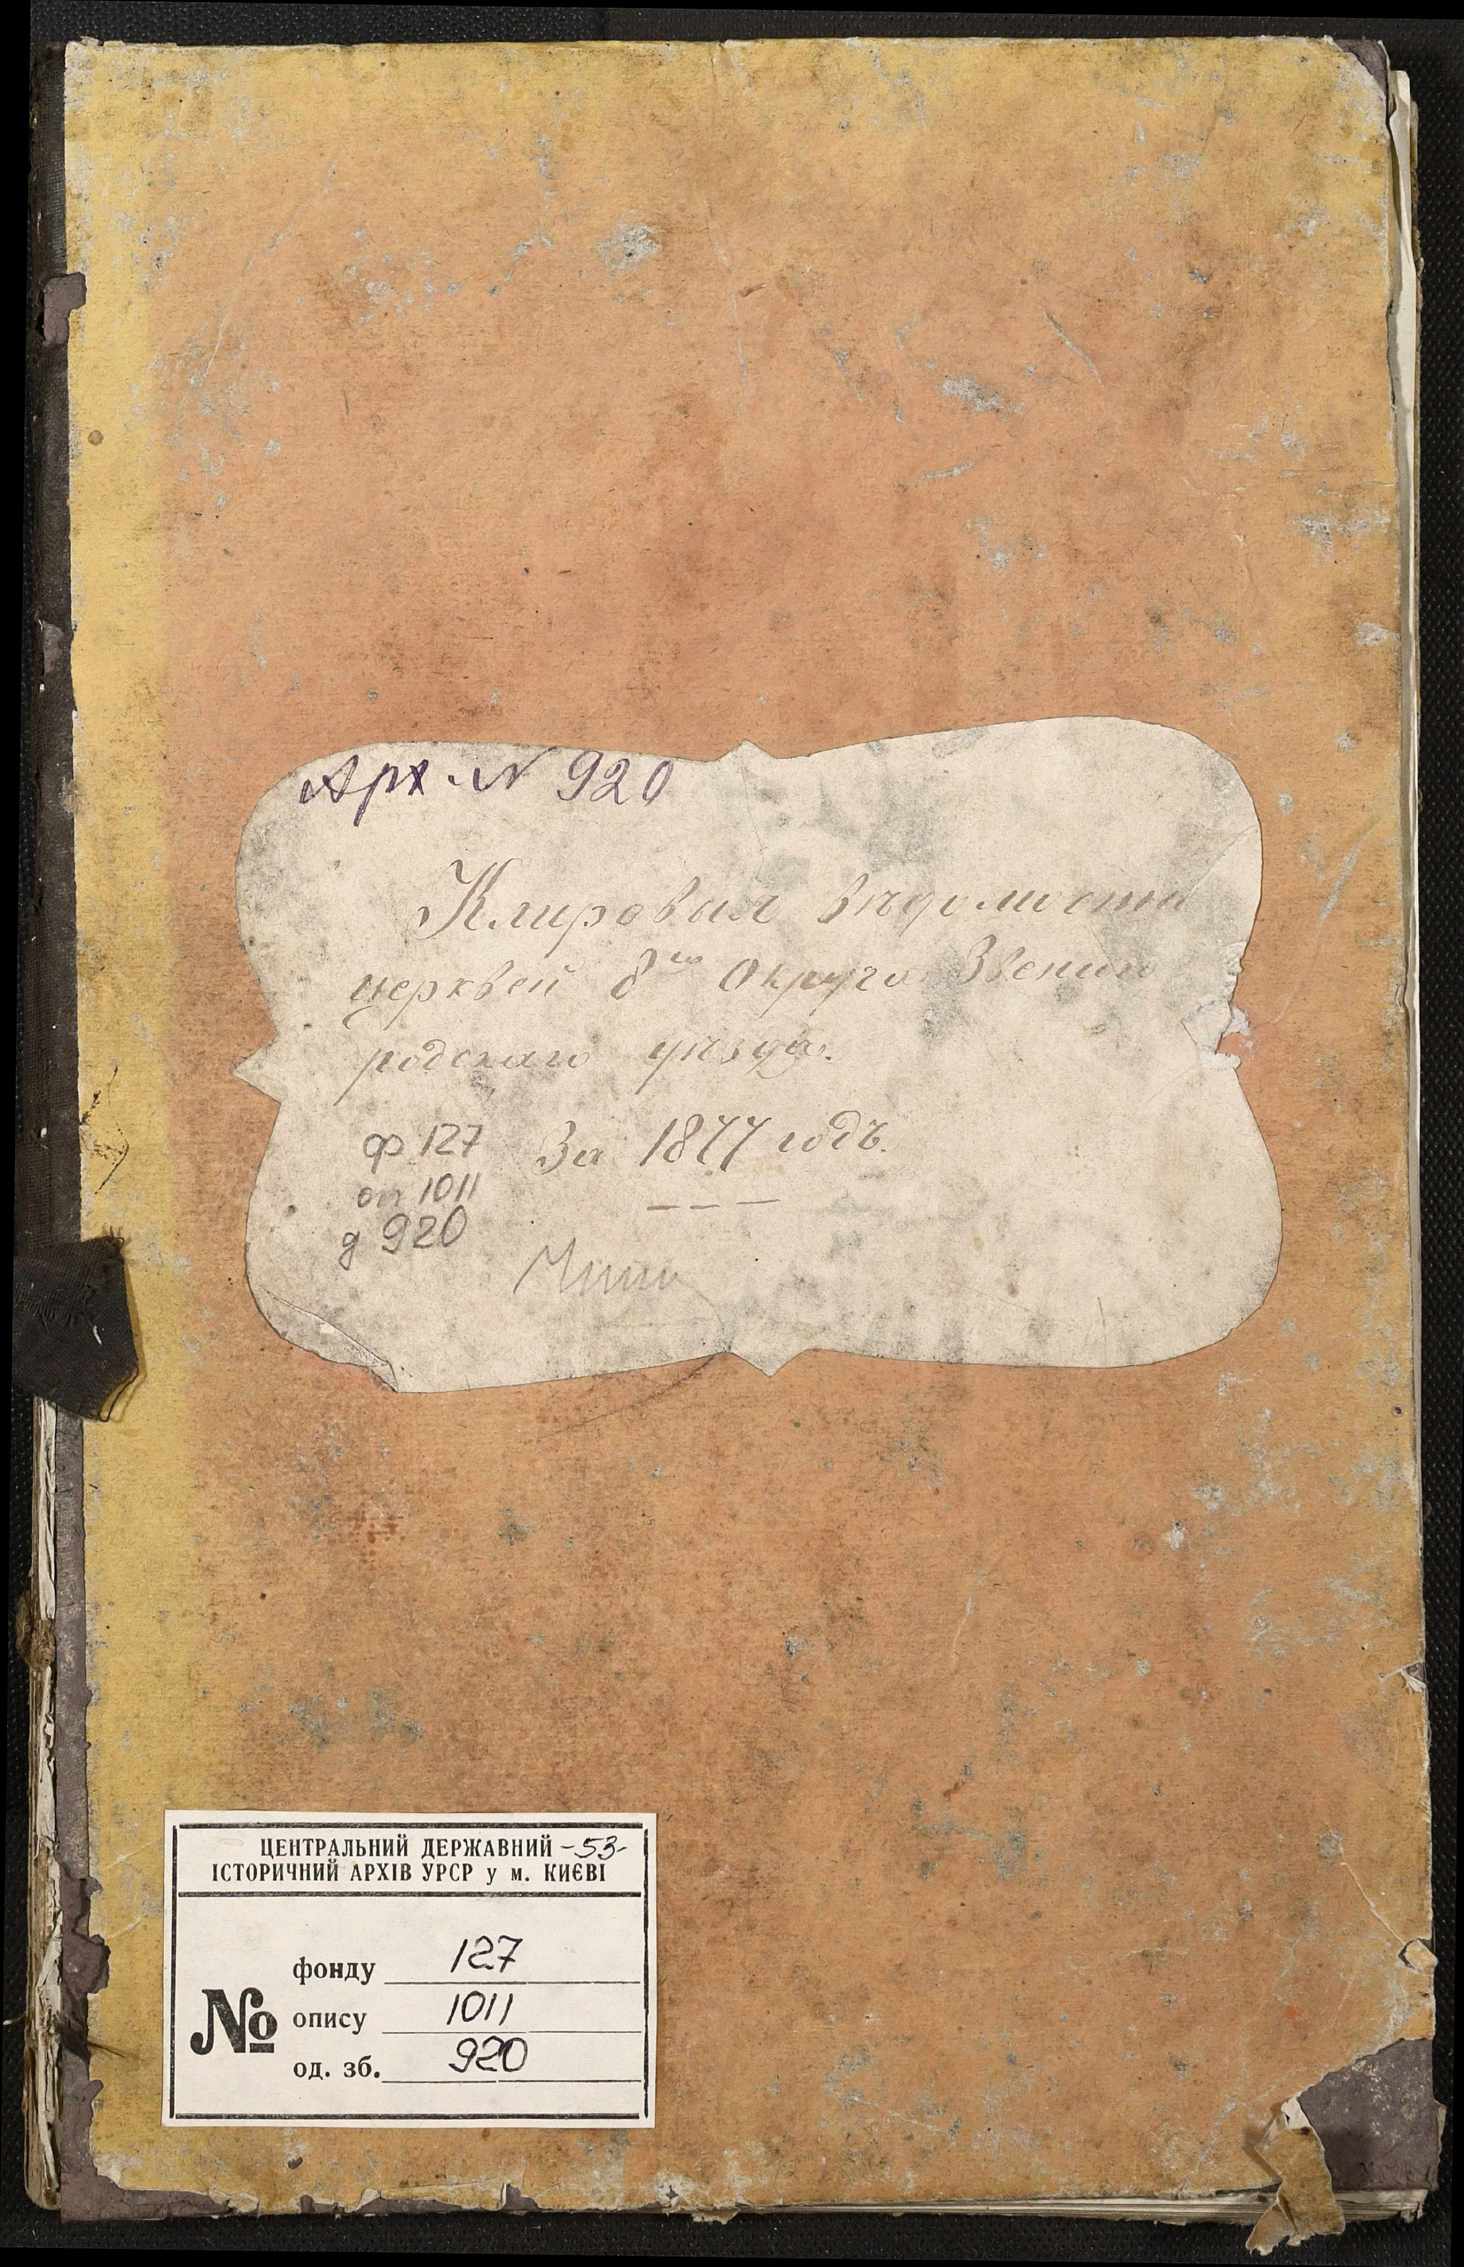 Арх. N 920
Клировыя вѣдомости
церквей округа Звениго
родскаго уѣзда.
ф 127 За 1877 годъ.
оп 1011
д 920
ЦЕНТРАЛЬНИЙ ДЕРЖАВНИЙ -53-
ІСТОРИЧНИЙ АРХІВ УРСР у м. КИЄВІ
фонду 127
№ опису 1011
од. зб. 920